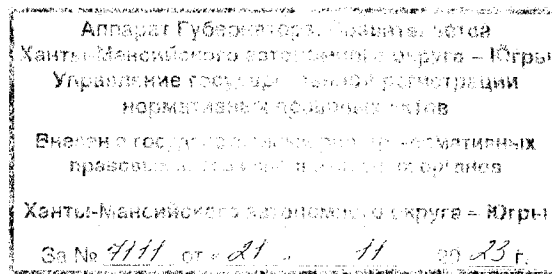 Аппарат Губернатора, Правительства
Ханты-Мансийского автономного округа – Югры
Управление государственной регистрации
нормативных правовых актов
Внесен в государственный нормативных
правовых органов
Ханты-Мансийского автономного округа – Югры
За № 7111 от « 21 » 11 20 23 г.